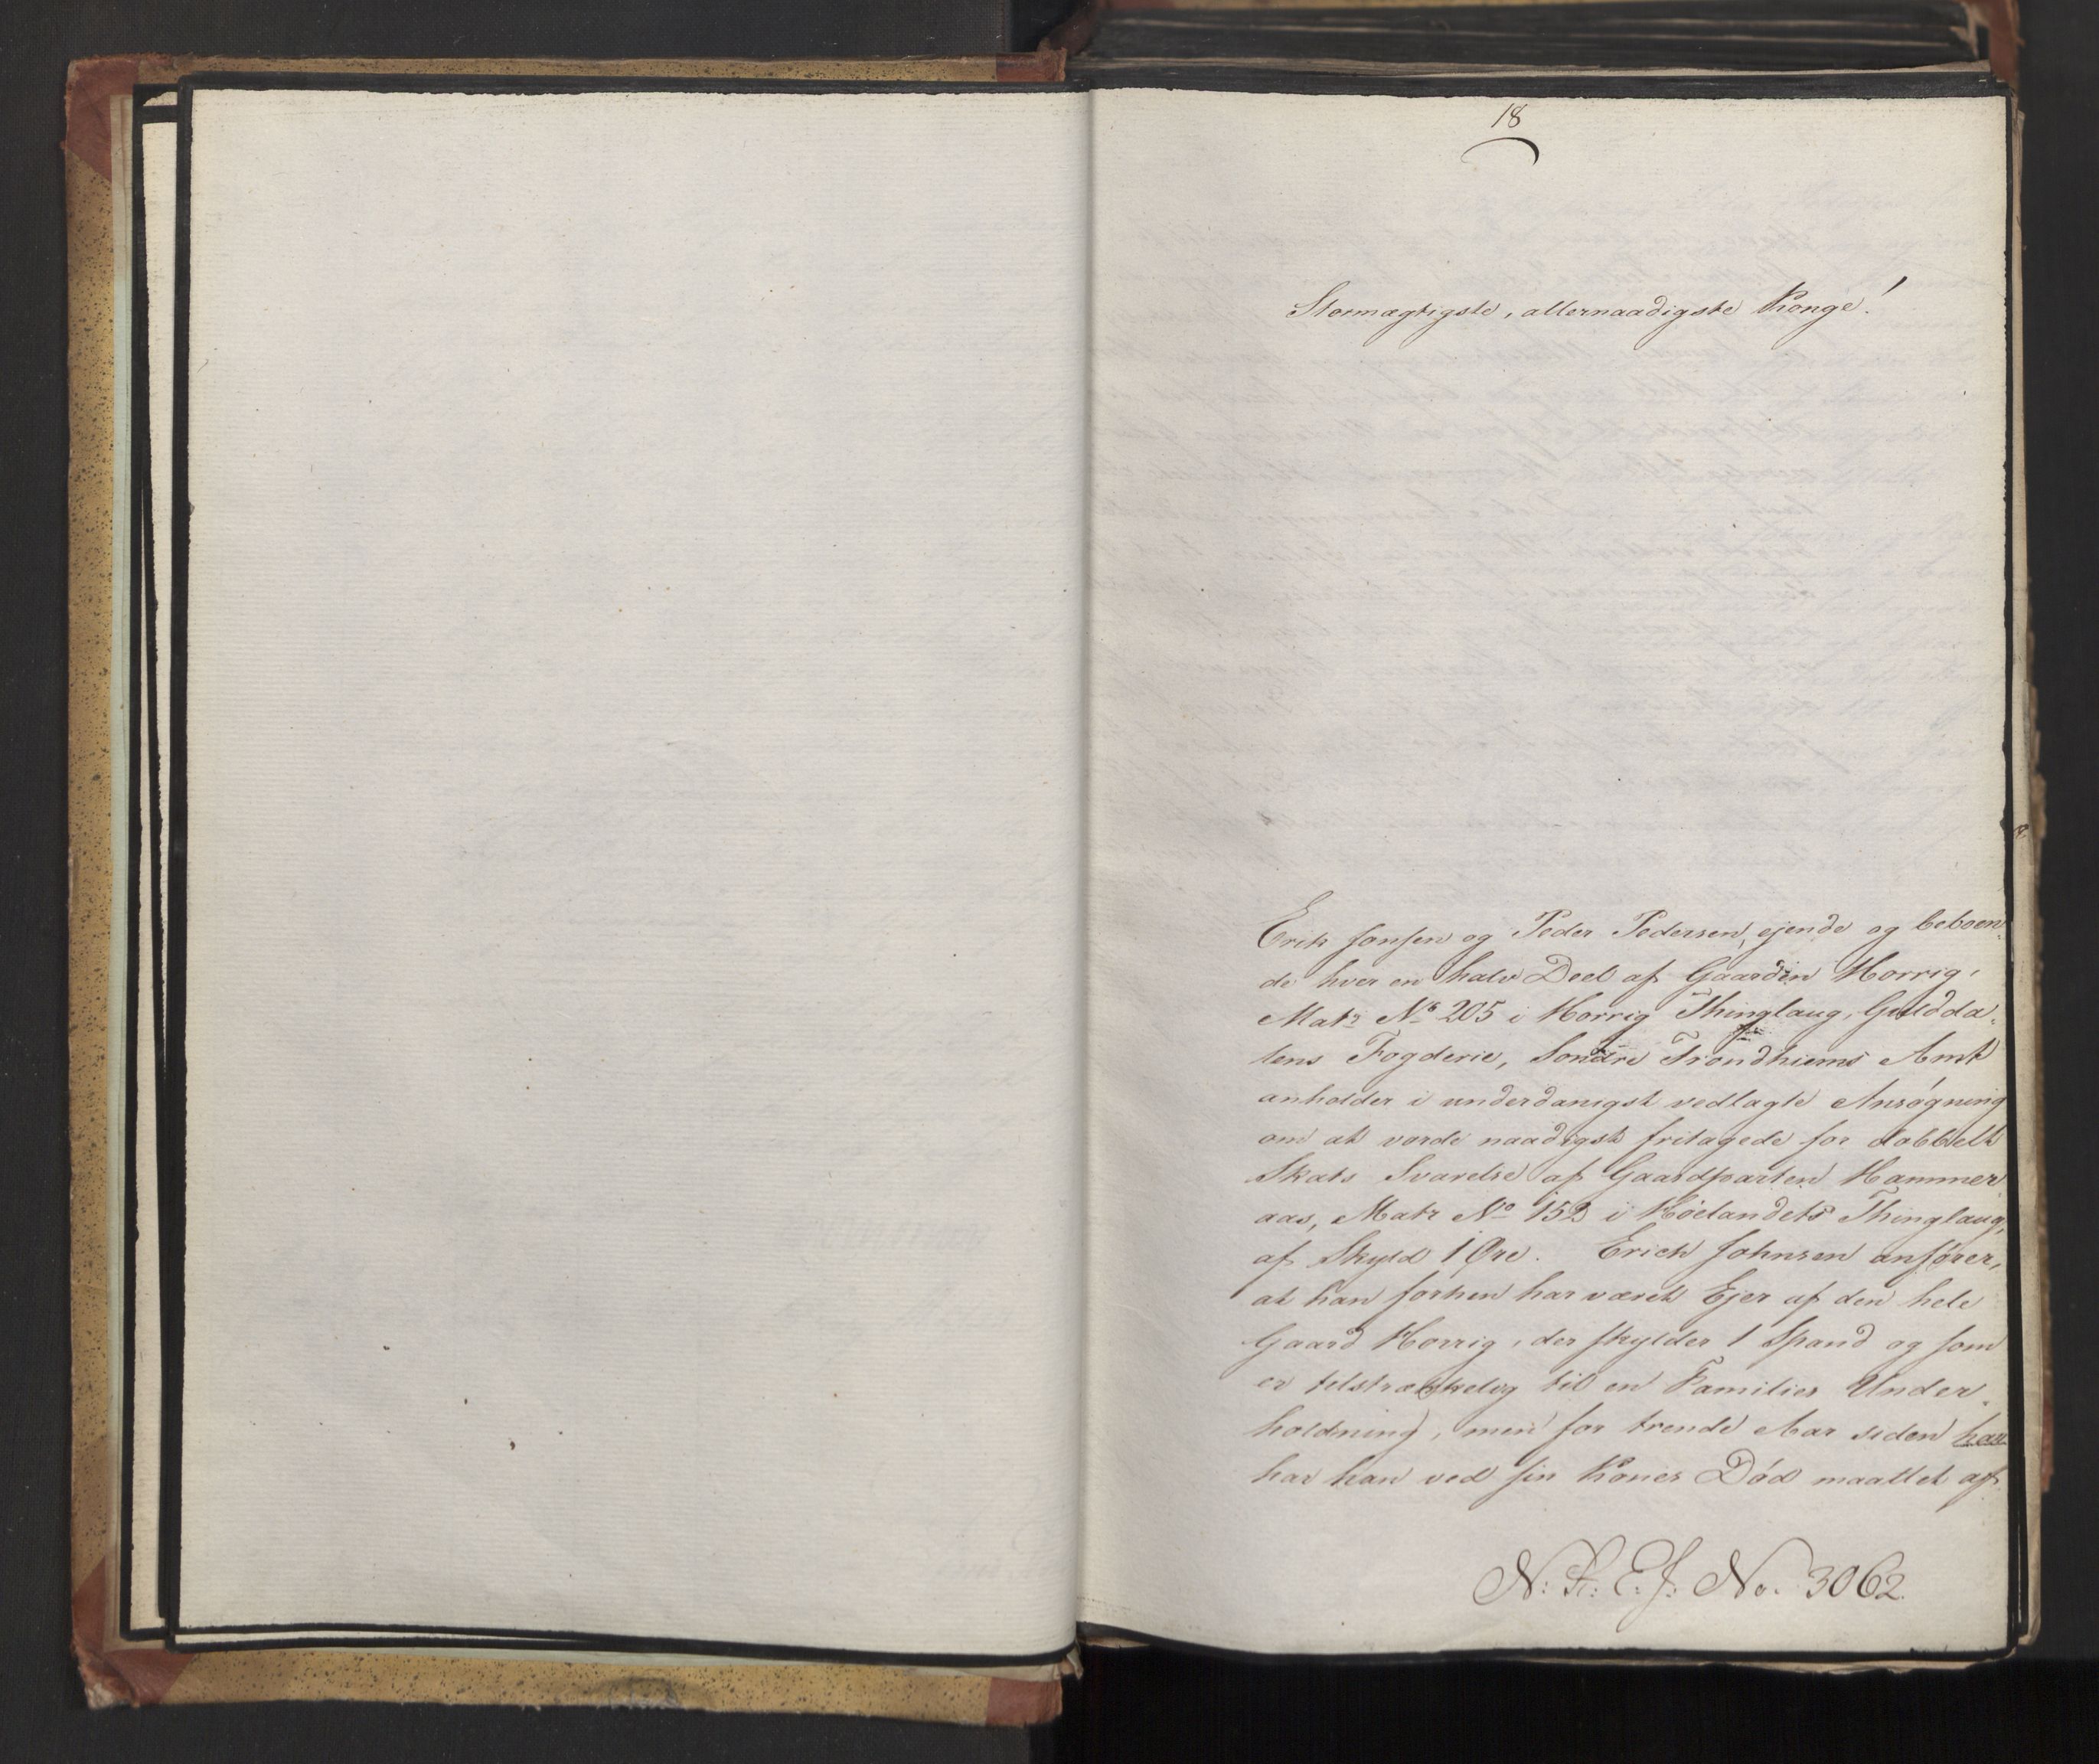 18
Stormægtigste, allernaadigste Konge!
Erik Jonsen og Peder Pedersen, ejende og beboen-
de hver en halv Deel af Gaarden Horrig,
Matr No 205 i Horrig Thinglaug, Guldda-
lens Fogderie, Sondre Trondhiems Amt
anholder i underdanigst vedlagte Ansøgning
om at vorde naadigst fritagede for dobbelt
Skats Svarelse af Gaardparten Hammer
aas, Matr No 152 i Høelandets Thinglaug,
af Skyld 1 Øre. Erich Johnsen anfører,
at han forhen har været Ejer af den hele
Gaard Horrig, der skylder 1 Spand og som
er tilstrækkelig til en Families Under-
holdning, men for trende Aar siden har
har han ved sin Kones Død maattet af-
N: R: E: J: No. 3062.